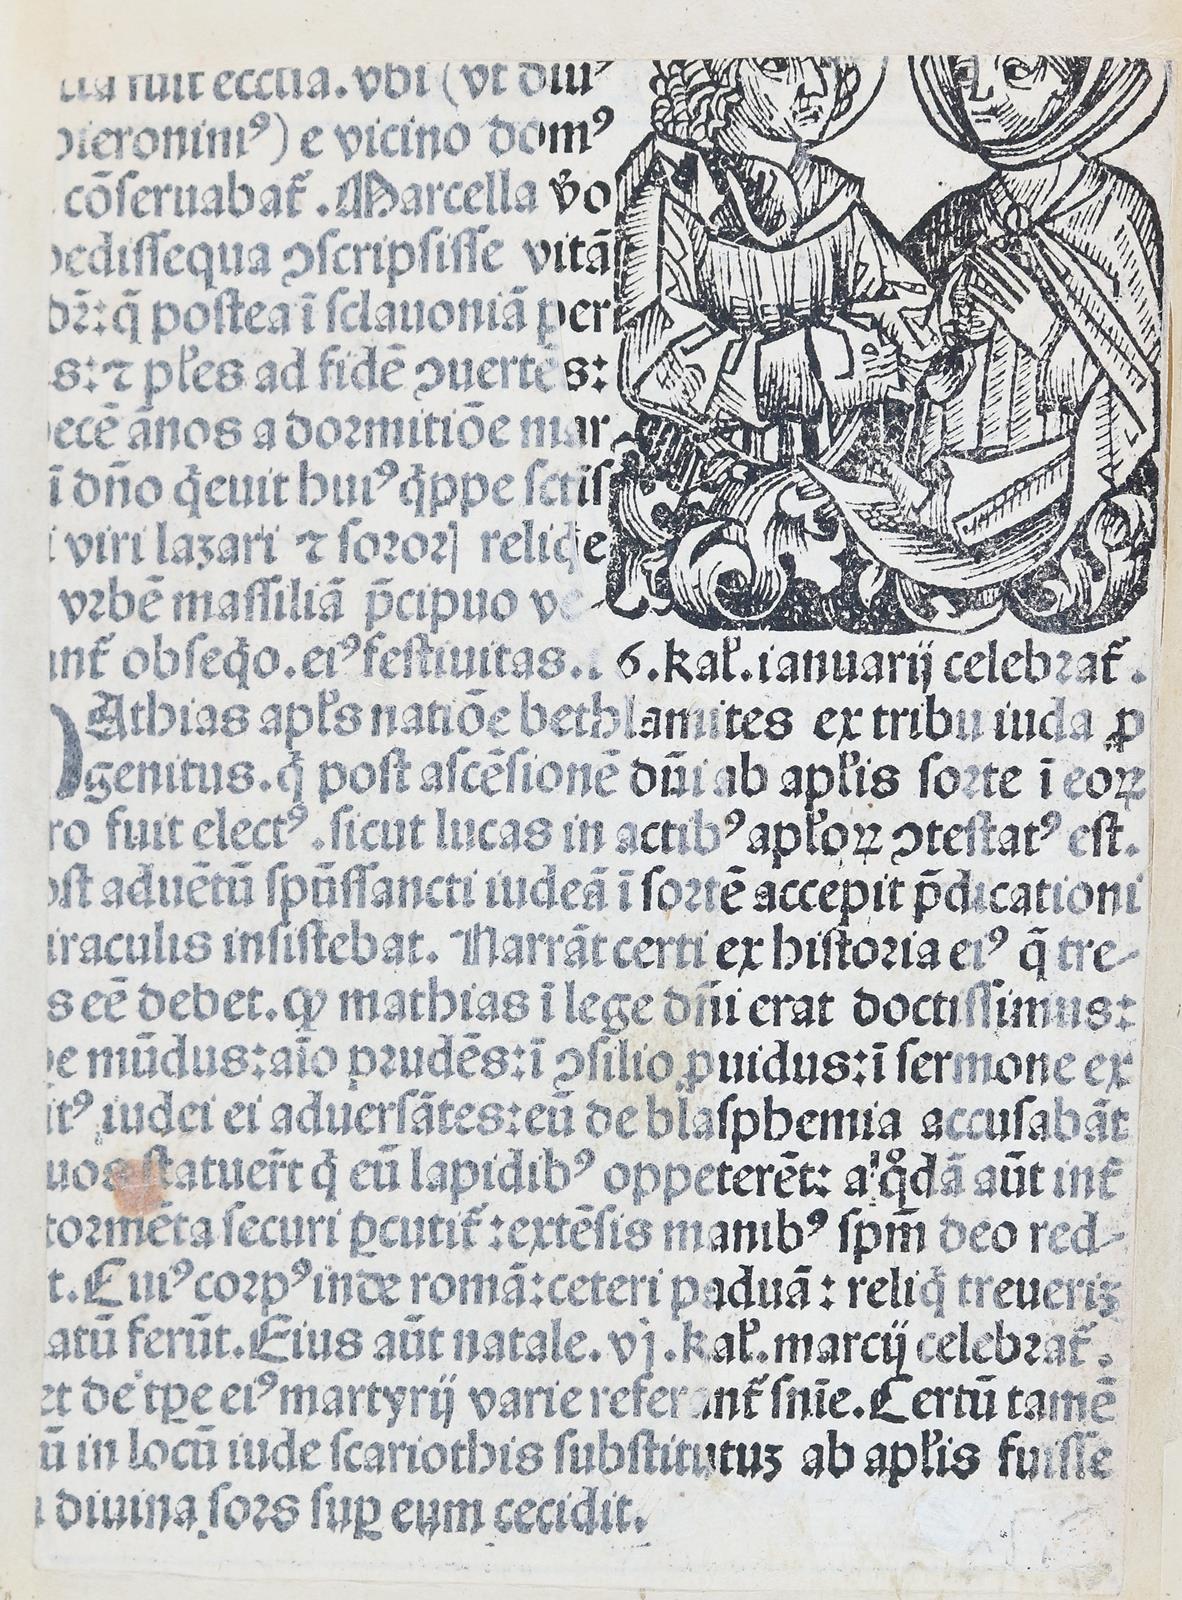 fuit ecctia. vbi (vt diu⁹
ieronini⁹) e vicino dom⁹
cōseruabat̄ . Marcella v̄o
pedissequa ꝯscripsisse vitā
dr̄: q̄ postea ī sclauoniā per
s: ⁊ pl̄es ad fidē ꝯuertēs:
ecē ānos a dormitiōe mar
ī dn̄o q̇euit hui⁹ q̇ppe sctīs
i viri lazari ⁊ soror⸥ reliq̇e
vrbē massiliā p̄cipuo ve
ant̄ obseq̇o. ei⁹ festiuitas. 16. kal̄. ianuarij celebrat̄ .
Athias apl̄s natiōe bethlamites ex tribu iuda ꝓ
genitus. q̇ post ascēsionē dn̄i ab apl̄is sorte ī eoꝝ
ro fuit elect⁹ . sicut lucas in actib⁹ apl̄oꝝ ꝯtestat⁹ est.
ost aduētū spūssancti iudeā ī sortē accepit p̄dicationi
iraculis insistebat. Narrāt certi ex historia ei⁹ q̄ tre-
s eē debet. ꝙ mathias ī lege dn̄i erat doctissimus:
e mūdus: aīo prudēs: ī ꝯsilio ꝓuidus: ī sermone ex
it⁹ iudei ei aduersātes: eū de blasphemia accusabāt
uos statuer̄t q̇ eū lapidib⁹ oppeterēt: a' q̊dā aūt int̄
tormēta securi ꝑcutit̄ : extēsis manib⁹ spm̄ deo red-
t. Cui⁹ corp⁹ inde romā: ceteri paduā : reliq̇ treueriꝫ
atū ferūt. Eius aūt natale. vj. kal̄. marcij celebrat̄ .
et de tꝑe ei⁹ martyrij varie referant̄ snīe. Certū tamē
ū in locū iude scariothis substitutuꝫ ab apl̄is fuisse
diuina sors suꝑ eum cecidit.